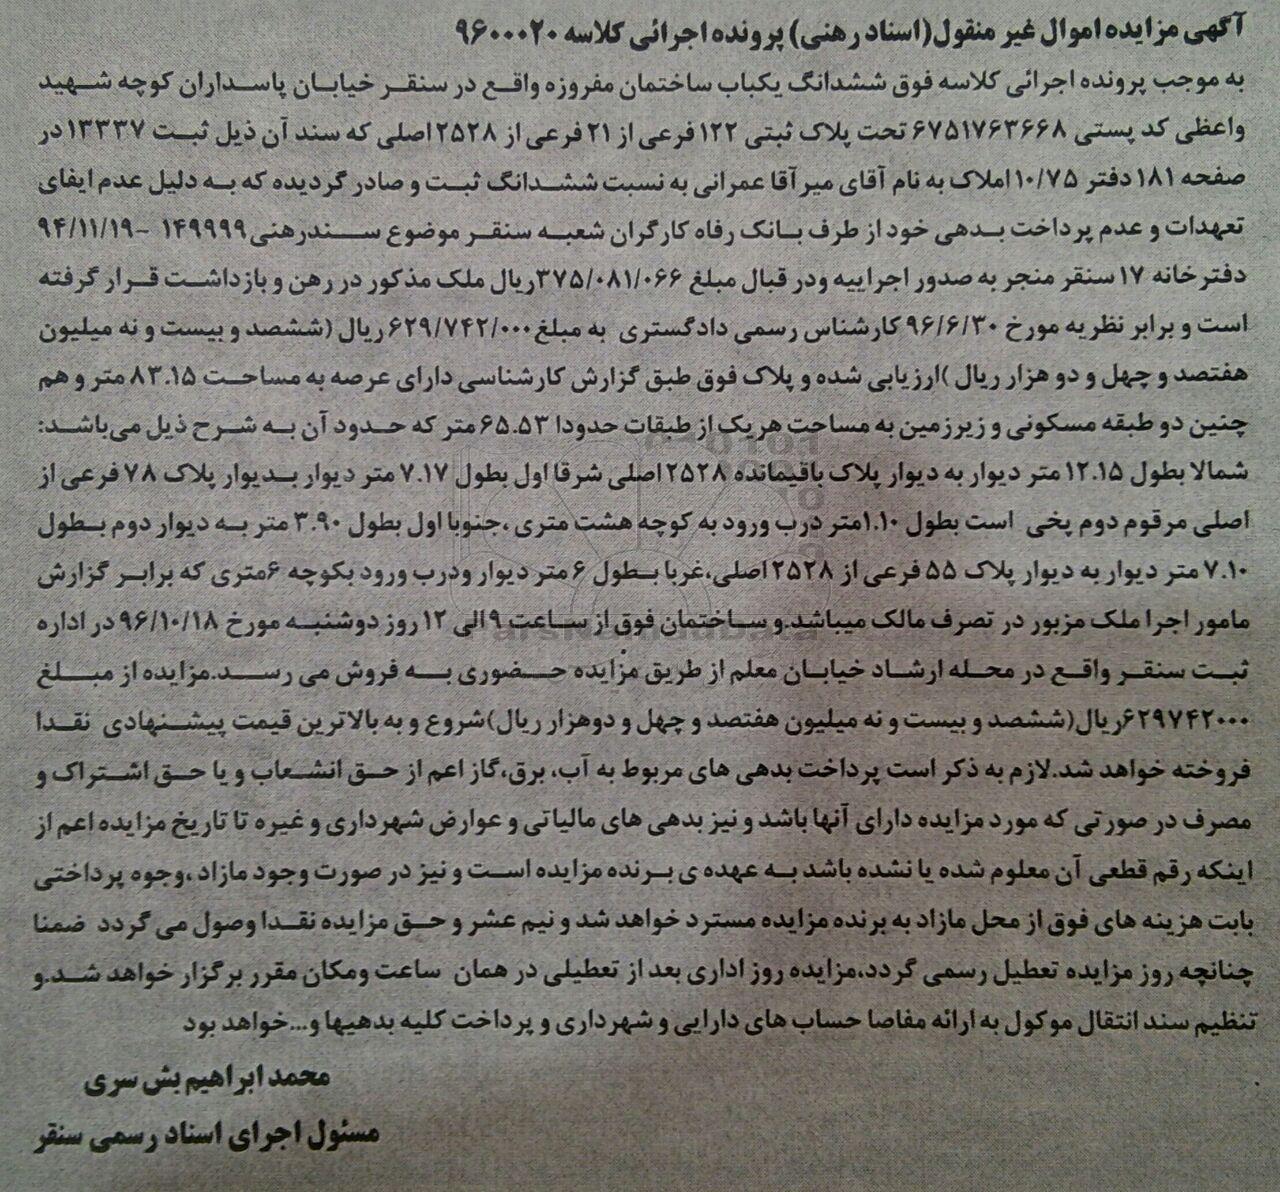 آگهی مزایده اموال غیر منقول(اسناد رهنی) پرونده اجرائی کلاسه ۹۶۰۰۰۲۰
به موجب پرونده اجرائی کلاسه فوق ششدانگ یکباب ساختمان مفروزه واقع در سنقر خیابان پاسداران کوچه شهید
واعظی کد پستی ۶۷۵۱۷۶۳۶۶۸ تحت پلاک ثبتی ۱۲۲ فرعی از ۲۱ فرعی از ۲۵۲۸ اصلی که سند آن ذیل ثبت ۱۳۳۳۷ در
صفحه ۱۸۱ دفتر ۱۰/۷۵ املاک به نام آقای میر آقا عمرانی به نسبت ششدانگ ثبت و صادر گردیده که به دلیل عدم ایفای
تعهدات و عدم پرداخت بدهی خود از طرف بانک رفاه کارگران شعبه سنقر موضوع سندرهنی ۱۴۹۹۹۹ -۹۴/۱۱/۱۹
دفترخانه ۱۷ سنقر منجر به صدور اجراییه ودر قبال مبلغ ۳۷۵/۰۸۱/۰۶۶ریال ملک مذکور در رهن و بازداشت قرار گرفته
است و برابر نظریه مورخ ۹۶/۶/۳۰ کارشناس رسمی دادگستری به مبلغ ۶۲۹/۷۴۲/۰۰۰ ریال (ششصد و بیست و نه میلیون
هفتصد و چهل و دو هزار ریال )ارزیابی شده و پلاک فوق طبق گزارش کارشناسی دارای عرصه به مساحت ۸۳.۱۵ متر و هم
چنین دو طبقه مسکونی و زیرزمین به مساحت هریک از طبقات حدودا ۶۵.۵۳ متر که حدود آن به شرح ذیل می‌باشد:
شمالا بطول ۱۲.۱۵ متر دیوار به دیوار پلاک باقیمانده ۲۵۲۸ اصلی شرقا اول بطول ۷.۱۷ متر دیوار بدیوار پلاک ۷۸ فرعی از
اصلی مرقوم دوم پخی است بطول ۱.۱۰متر درب ورود به کوچه هشت متری ،جنوبا اول بطول ۳.۹۰ متر به دیوار دوم بطول
۷.۱۰ متر دیوار به دیوار پلاک ۵۵ فرعی از ۲۵۲۸ اصلی،غربا بطول ۶ متر دیوار ودرب ورود بکوچه ۶متری که برابر گزارش
مامور اجرا ملک مزبور در تصرف مالک میباشد.و ساختمان فوق از ساعت ۹ الی ۱۲ روز دوشنبه مورخ ۹۶/۱۰/۱۸ در اداره
ثبت سنقر واقع در محله ارشاد خیابان معلم از طریق مزایده حضوری به فروش می رسد.مزایده از مبلغ
۶۲۹۷۴۲۰۰۰ریال(ششصد و بیست و نه میلیون هفتصد و چهل و دوهزار ریال)شروع و به بالاترین قیمت پیشنهادی نقدا
فروخته خواهد شد.لازم به ذکر است پرداخت بدهی های مربوط به آب، برق،گاز اعم از حق انشعاب و یا حق اشتراک و
مصرف در صورتی که مورد مزایده دارای آنها باشد و نیز بدهی های مالیاتی و عوارض شهرداری و غیره تا تاریخ مزایده اعم از
اینکه رقم قطعی آن معلوم شده یا نشده باشد به عهده ی برنده مزایده است و نیز در صورت وجود مازاد ،وجوه پرداختی
بابت هزینه های فوق از محل مازاد به برنده مزایده مسترد خواهد شد و نیم عشر و حق مزایده نقدا وصول می گردد ضمنا
چنانچه روز مزایده تعطیل رسمی گردد،مزایده روز اداری بعد از تعطیلی در همان ساعت ومکان مقرر برگزار خواهد شد.و
تنظیم سند انتقال موکول به ارائه مفاصا حساب های دارایی و شهرداری و پرداخت کلیه بدهیها و...خواهد بود
محمد ابراهیم بش سری
مسئول اجرای اسناد رسمی سنقر